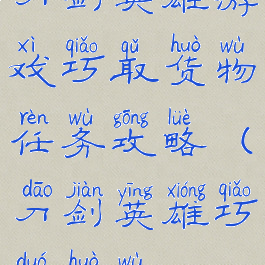 剑英雄游
xì qiǎo qǔ huò wù
戏巧取货物
rèn wù gōng lüè
任务攻略（
dāo jiàn yīng xióng qiǎo
刀剑英雄巧
duó huò wù